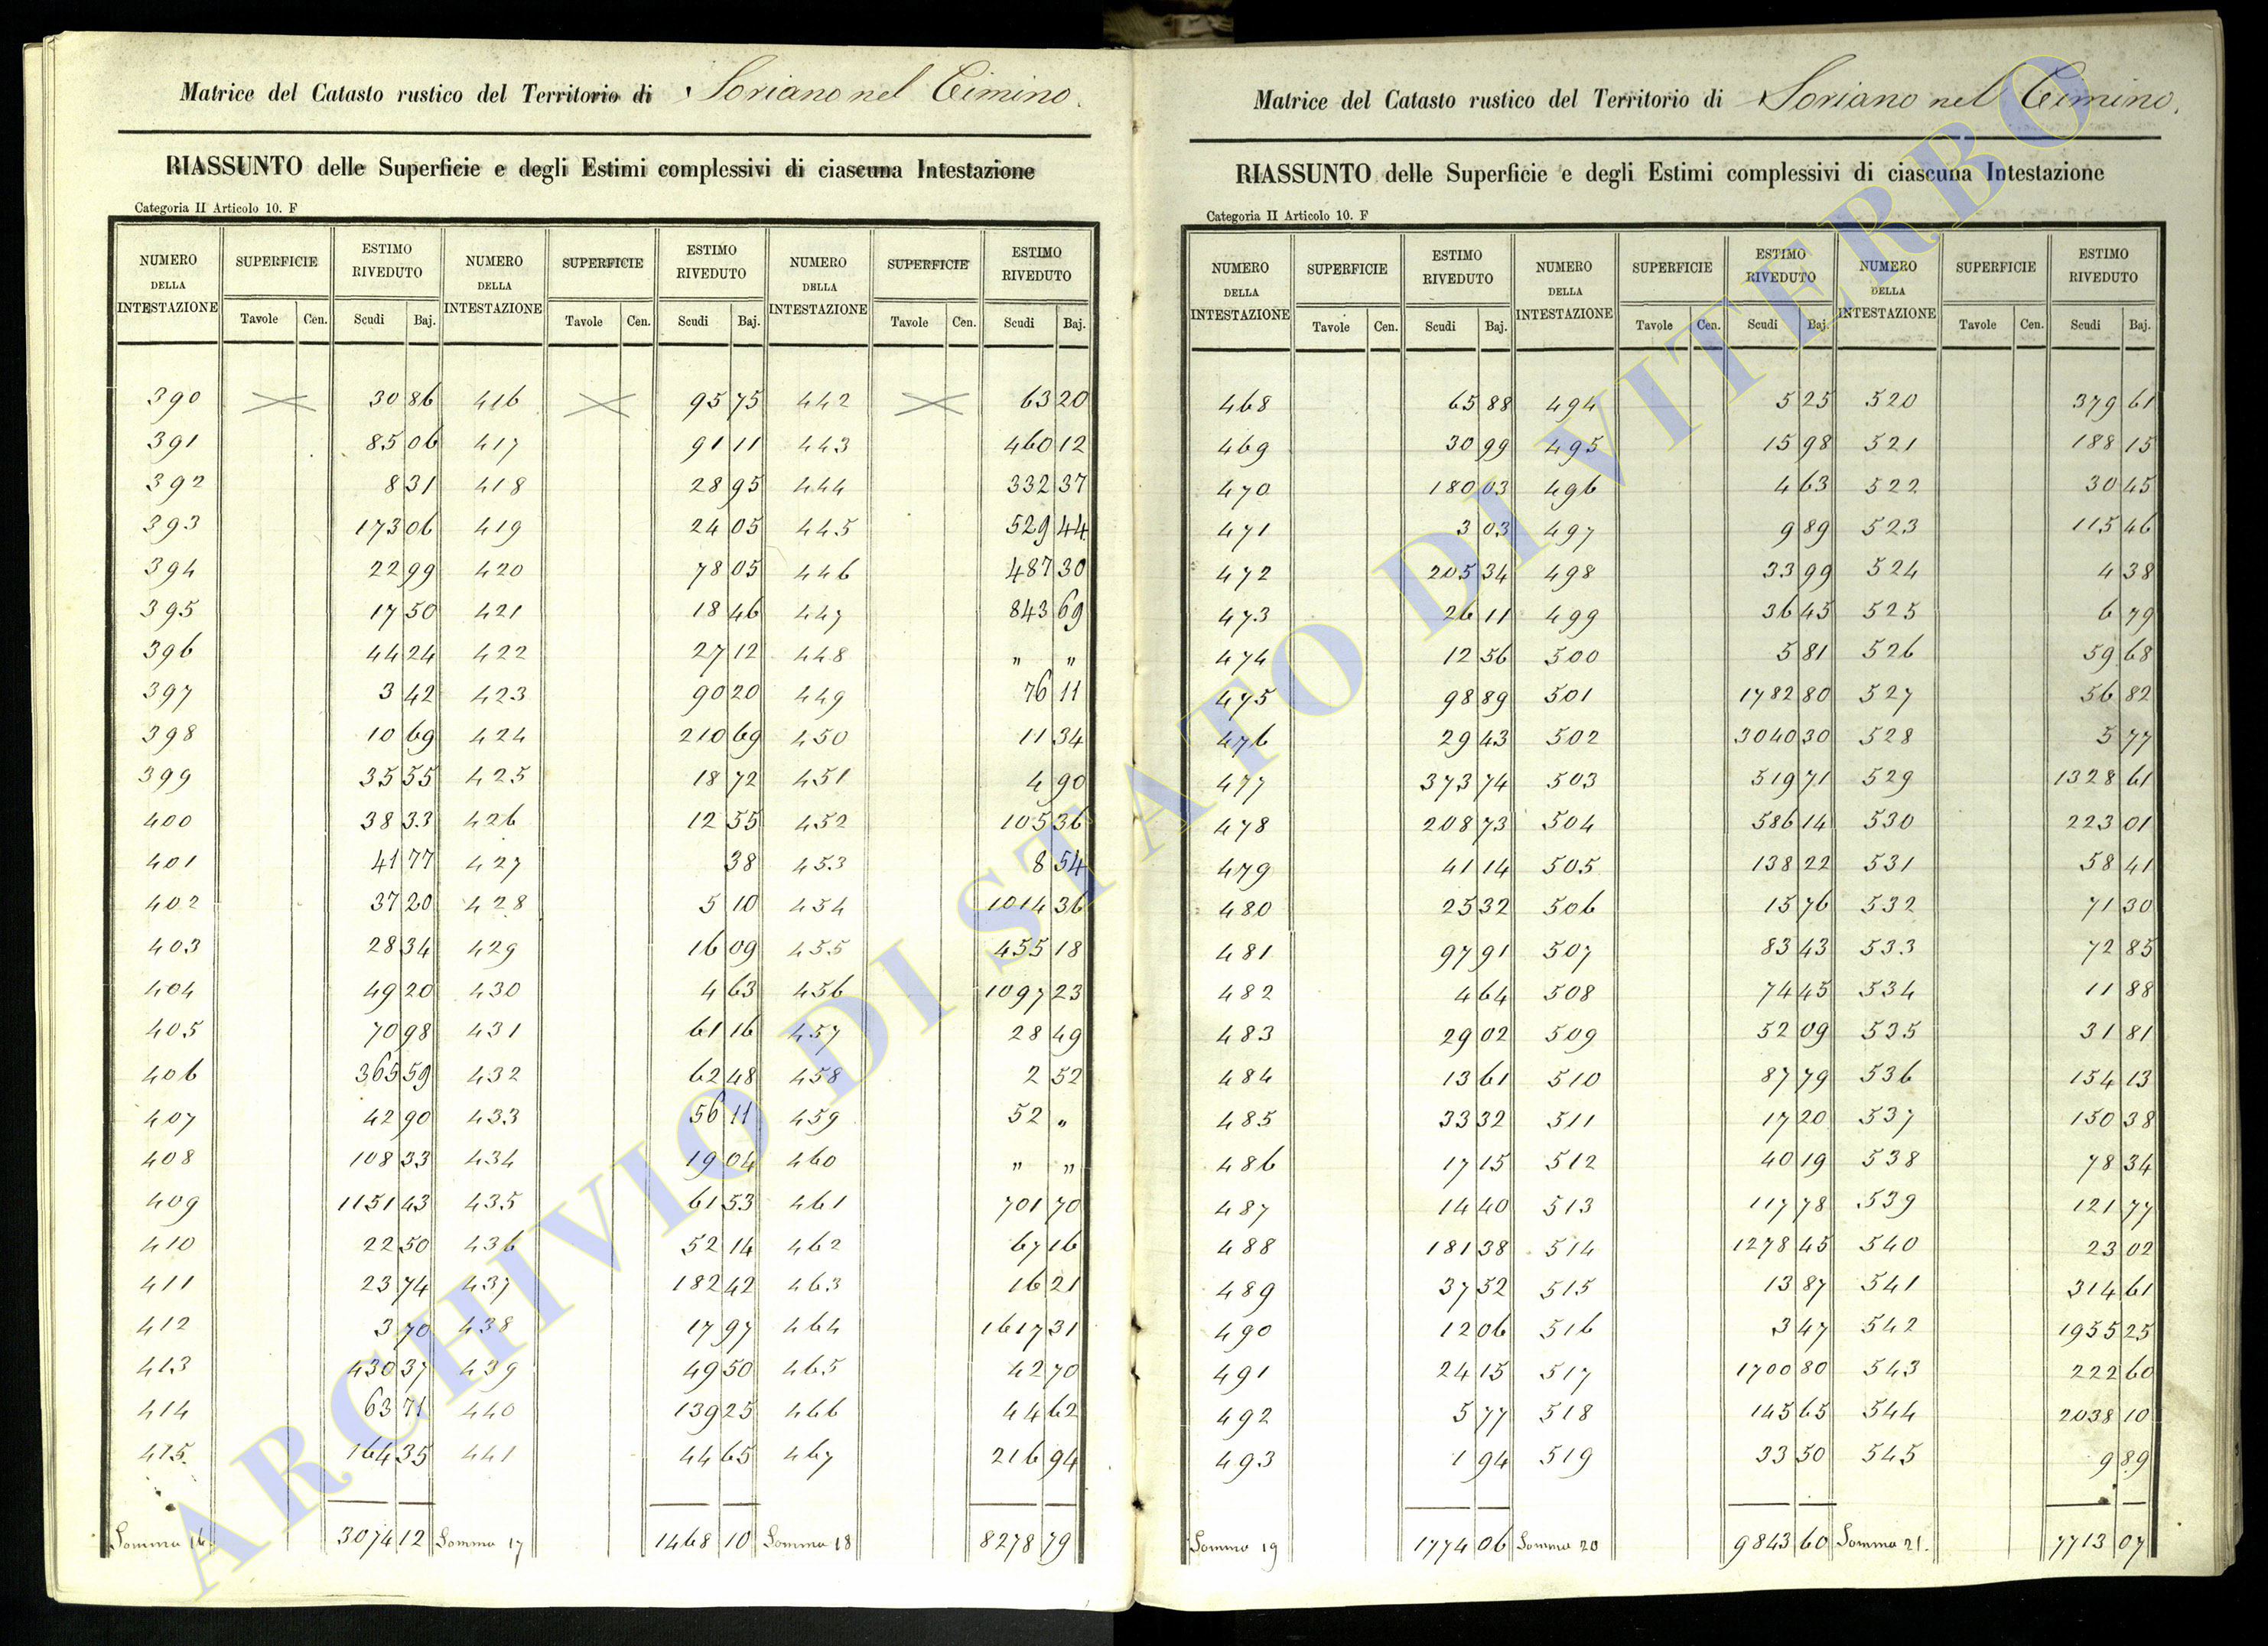 Matrice del Catasto rustico del Territorio di Soriano nel Cimino.
RIASSUNTO delle Superficie e degli Estimi complessivi di ciascuna Intestazione
Categoria II Articolo 10. F
NUMERO DELLA INTESTAZIONE SUPERFICIE ESTIMO RIVEDUTO NUMERO DELLA INTESTAZIONE SUPERFICIE ESTIMO RIVEDUTO NUMERO DELLA INTESTAZIONE SUPERFICIE ESTIMO RIVEDUTO
Tavole Cen. Scudi Baj. Tavole Cen. Scudi Baj. Tavole Cen. Scudi Baj.
390 30 86 416 95 75 442 63 20
391 85 06 417 91 11 443 460 12
392 8 31 418 28 95 444 332 37
393 173 06 419 24 05 445 529 44
394 22 99 420 78 05 446 487 30
395 17 50 421 18 46 447 843 69
396 44 24 422 27 12 448 " "
397 3 42 423 90 20 449 76 11
398 10 69 424 210 69 450 11 34
399 35 55 425 18 72 451 4 90
400 38 33 426 12 55 452 105 36
401 41 77 427 38 453 8 54
402 37 20 428 5 10 454 1014 36
403 28 34 429 16 09 455 455 18
404 49 20 430 4 63 456 1097 23
405 70 98 431 61 16 457 28 49
406 365 59 432 62 48 458 2 52
407 42 90 433 56 11 459 52 "
408 108 33 434 19 04 460 " "
409 1151 43 435 61 53 461 701 70
410 22 50 436 52 14 462 67 16
411 23 74 437 182 42 463 16 21
412 3 70 438 17 97 464 1617 31
413 430 37 439 49 50 465 42 70
414 63 71 440 139 25 466 44 62
415 164 35 441 44 65 467 216 94
Somma 16 3074 12 Somma 17 1468 10 Somma 18 8278 79
Matrice del Catasto rustico del Territorio di Soriano nel Cimino.
RIASSUNTO delle Superficie e degli Estimi complessivi di ciascuna Intestazione
Categoria II Articolo 10. F
NUMERO DELLA INTESTAZIONE SUPERFICIE ESTIMO RIVEDUTO NUMERO DELLA INTESTAZIONE SUPERFICIE ESTIMO RIVEDUTO NUMERO DELLA INTESTAZIONE SUPERFICIE ESTIMO RIVEDUTO
Tavole Cen. Scudi Baj. Tavole Cen. Scudi Baj. Tavole Cen. Scudi Baj.
468 65 88 494 5 25 520 379 61
469 30 99 495 15 98 521 188 15
470 180 03 496 4 63 522 30 45
471 3 03 497 9 89 523 115 46
472 205 34 498 33 99 524 4 38
473 26 11 499 36 45 525 6 79
474 12 56 500 5 81 526 59 68
475 98 89 501 1782 80 527 56 82
476 29 43 502 3040 30 528 5 77
477 373 74 503 519 71 529 1328 61
478 208 73 504 586 14 530 223 01
479 41 14 505 138 22 531 58 41
480 25 32 506 15 76 532 71 30
481 97 91 507 83 43 533 72 85
482 4 64 508 74 45 534 11 88
483 29 02 509 52 09 535 31 81
484 13 61 510 87 79 536 154 13
485 33 32 511 17 20 537 150 38
486 17 15 512 40 19 538 78 34
487 14 40 513 117 78 539 121 77
488 181 38 514 1278 45 540 23 02
489 37 52 515 13 87 541 314 61
490 12 06 516 3 47 542 1955 25
491 24 15 517 1700 80 543 222 60
492 5 77 518 145 65 544 2038 10
493 1 94 519 33 50 545 9 89
Somma 19 1774 06 Somma 20 9843 60 Somma 21. 7713 07
ARCHIVIO DI STATO DI VITERBO